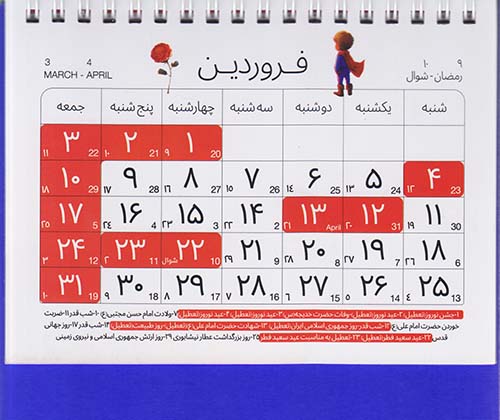 ۹ ۱۰
رمضان - شوال
فروردین
3 4
MARCH - APRIL
شنبه یکشنبه دوشنبه سه شنبه چهارشنبه پنج شنبه جمعه
۱ ۲ ۳
20 ۹ 21 ۱۰ 22 ۱۱
۴ ۵ ۶ ۷ ۸ ۹ ۱۰
23 ۱۲ 24 ۱۳ 25 ۱۴ 26 ۱۵ 27 ۱۶ 28 ۱۷ 29 ۱۸
۱۱ ۱۲ ۱۳ ۱۴ ۱۵ ۱۶ ۱۷
30 ۱۹ 31 ۲۰ April ۲۱ 2 ۲۲ 3 ۲۳ 4 ۲۴ 5 ۲۵
۱۸ ۱۹ ۲۰ ۲۱ ۲۲ ۲۳ ۲۴
6 ۲۶ 7 ۲۷ 8 ۲۸ 9 ۲۹ 10 شوال 11 ۲ 12 ۳
۲۵ ۲۶ ۲۷ ۲۸ ۲۹ ۳۰ ۳۱
13 ۴ 14 ۵ 15 ۶ 16 ۷ 17 ۸ 18 ۹ 19 ۱۰
۱-جشن نوروز(تعطیل) ۲-عید نوروز(تعطیل)-وفات حضرت خدیجه(س) ۳-عید نوروز(تعطیل) ۴-عید نوروز(تعطیل) ۷-ولادت امام حسن مجتبی(ع) ۱۰-شب قدر ۱۱-ضربت
خوردن حضرت امام علی(ع) ۱۲-شب قدر-روز جمهوری اسلامی ایران(تعطیل) ۱۳-شهادت حضرت امام علی(ع)(تعطیل)-روز طبیعت(تعطیل) ۱۴-شب قدر ۱۷-روز جهانی
قدس ۲۲-عید سعید فطر(تعطیل) ۲۳-تعطیل به مناسبت عید سعید فطر ۲۵-روز بزرگداشت عطار نیشابوری ۲۹-روز ارتش جمهوری اسلامی و نیروی زمینی